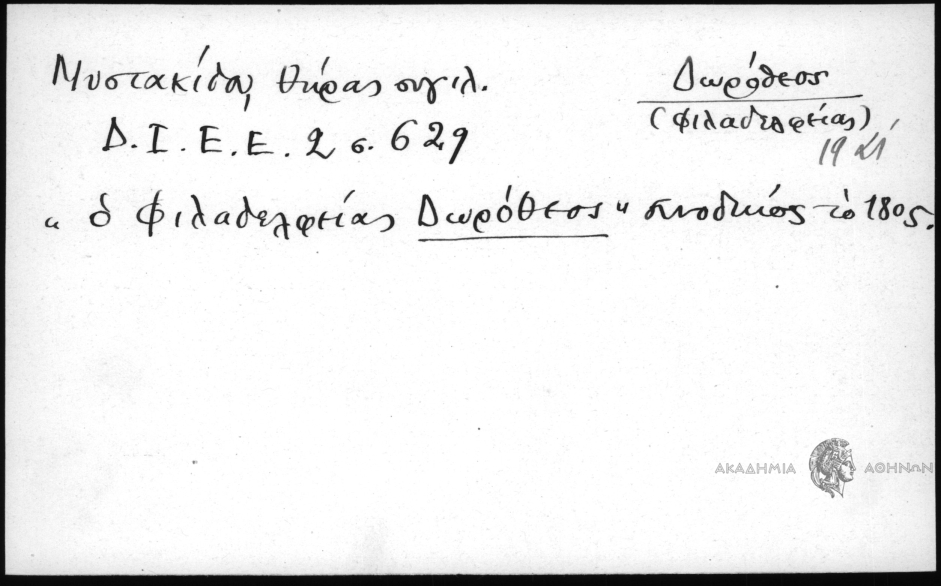 Μυστακίδου, Θήρας συγιλ.
Δ.Ι.Ε.Ε. 2 σ. 629
Δωρόθεος
(Φιλαδελφείας)
19
"ὁ Φιλαδελφείας Δωρόθεος" συνοδικός τὸ 1805.
ΑΚΑΔΗΜΙΑ ΑΘΗΝΩΝ